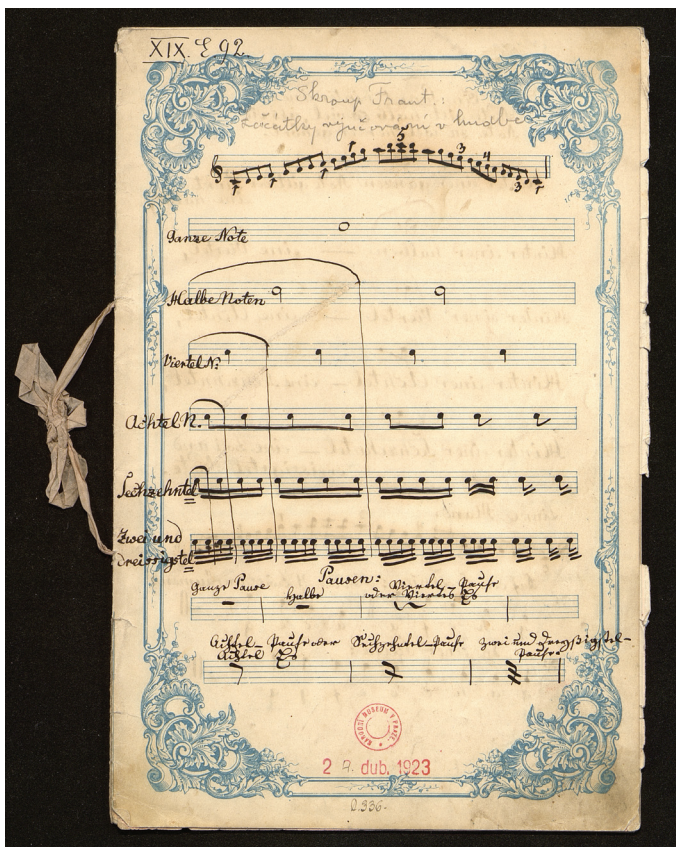 XIX. E 92.
Skroup Frant.:
začátky vyučování v hudbě
1 1 1 5 3 4 3 1
Ganze Note
Halbe Noten
Viertel N:
Achtel N.
Sechzehntel
Zwei und
dreissigstel
Pausen:
Ganze Pause
Halbe
Viertel-Pause
oder Viertel
Achtel-Pause oder
Achtel
Sechzehntel-Pause
zwei und dreyßigstel-
Pause.
NARODNÍ MUSEUM V PRAZE
2 7. dub. 1923